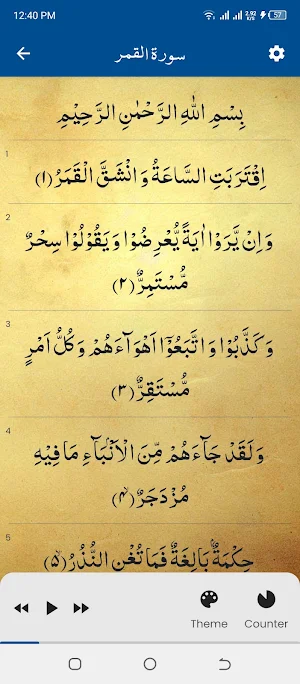 12:40 PM 2.92 K/s 57
سورة القمر
بِسْمِ اللّٰهِ الرَّحْمٰنِ الرَّحِيْمِ
1
اِقْتَرَبَتِ السَّاعَةُ وَانْشَقَّ الْقَمَرُ(۱)
2
وَاِنْ يَّرَوْا اٰيَةً يُّعْرِضُوْا وَيَقُوْلُوْا سِحْرٌ
مُّسْتَمِرٌّ(۲)
3
وَكَذَّبُوْا وَاتَّبَعُوْٓا اَهْوَآءَهُمْ وَكُلُّ اَمْرٍ
مُّسْتَقِرٌّ(۳)
4
وَلَقَدْ جَآءَهُمْ مِّنَ الْاَنْۢبَآءِ مَا فِيْهِ
مُزْدَجَرٌ(۴)
5
حِكْمَةٌۢ بَالِغَةٌ فَمَا تُغْنِ النُّذُرُ(۵)
Theme Counter